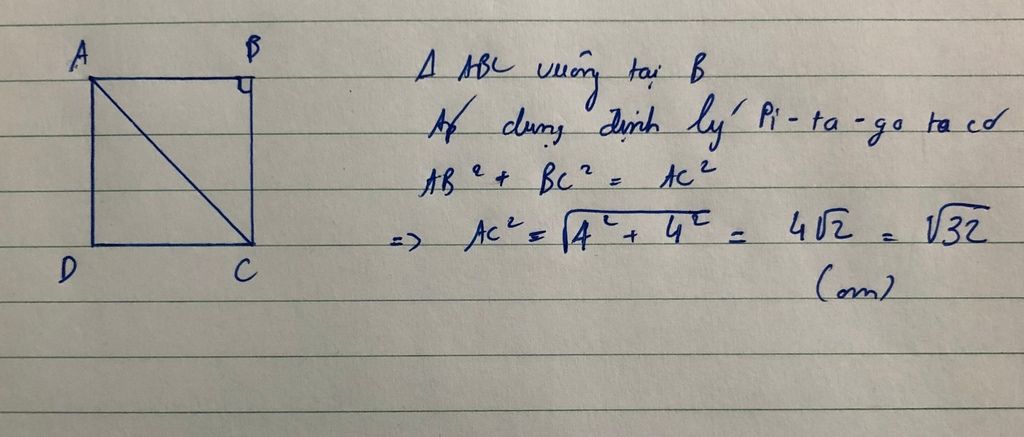 A B
Δ ABC vuông tại B
Áp dụng định lý Pi-ta-go ta có
AB² + BC² = AC²
=> AC² = √4² + 4² = 4√2 = √32
(cm)
D C